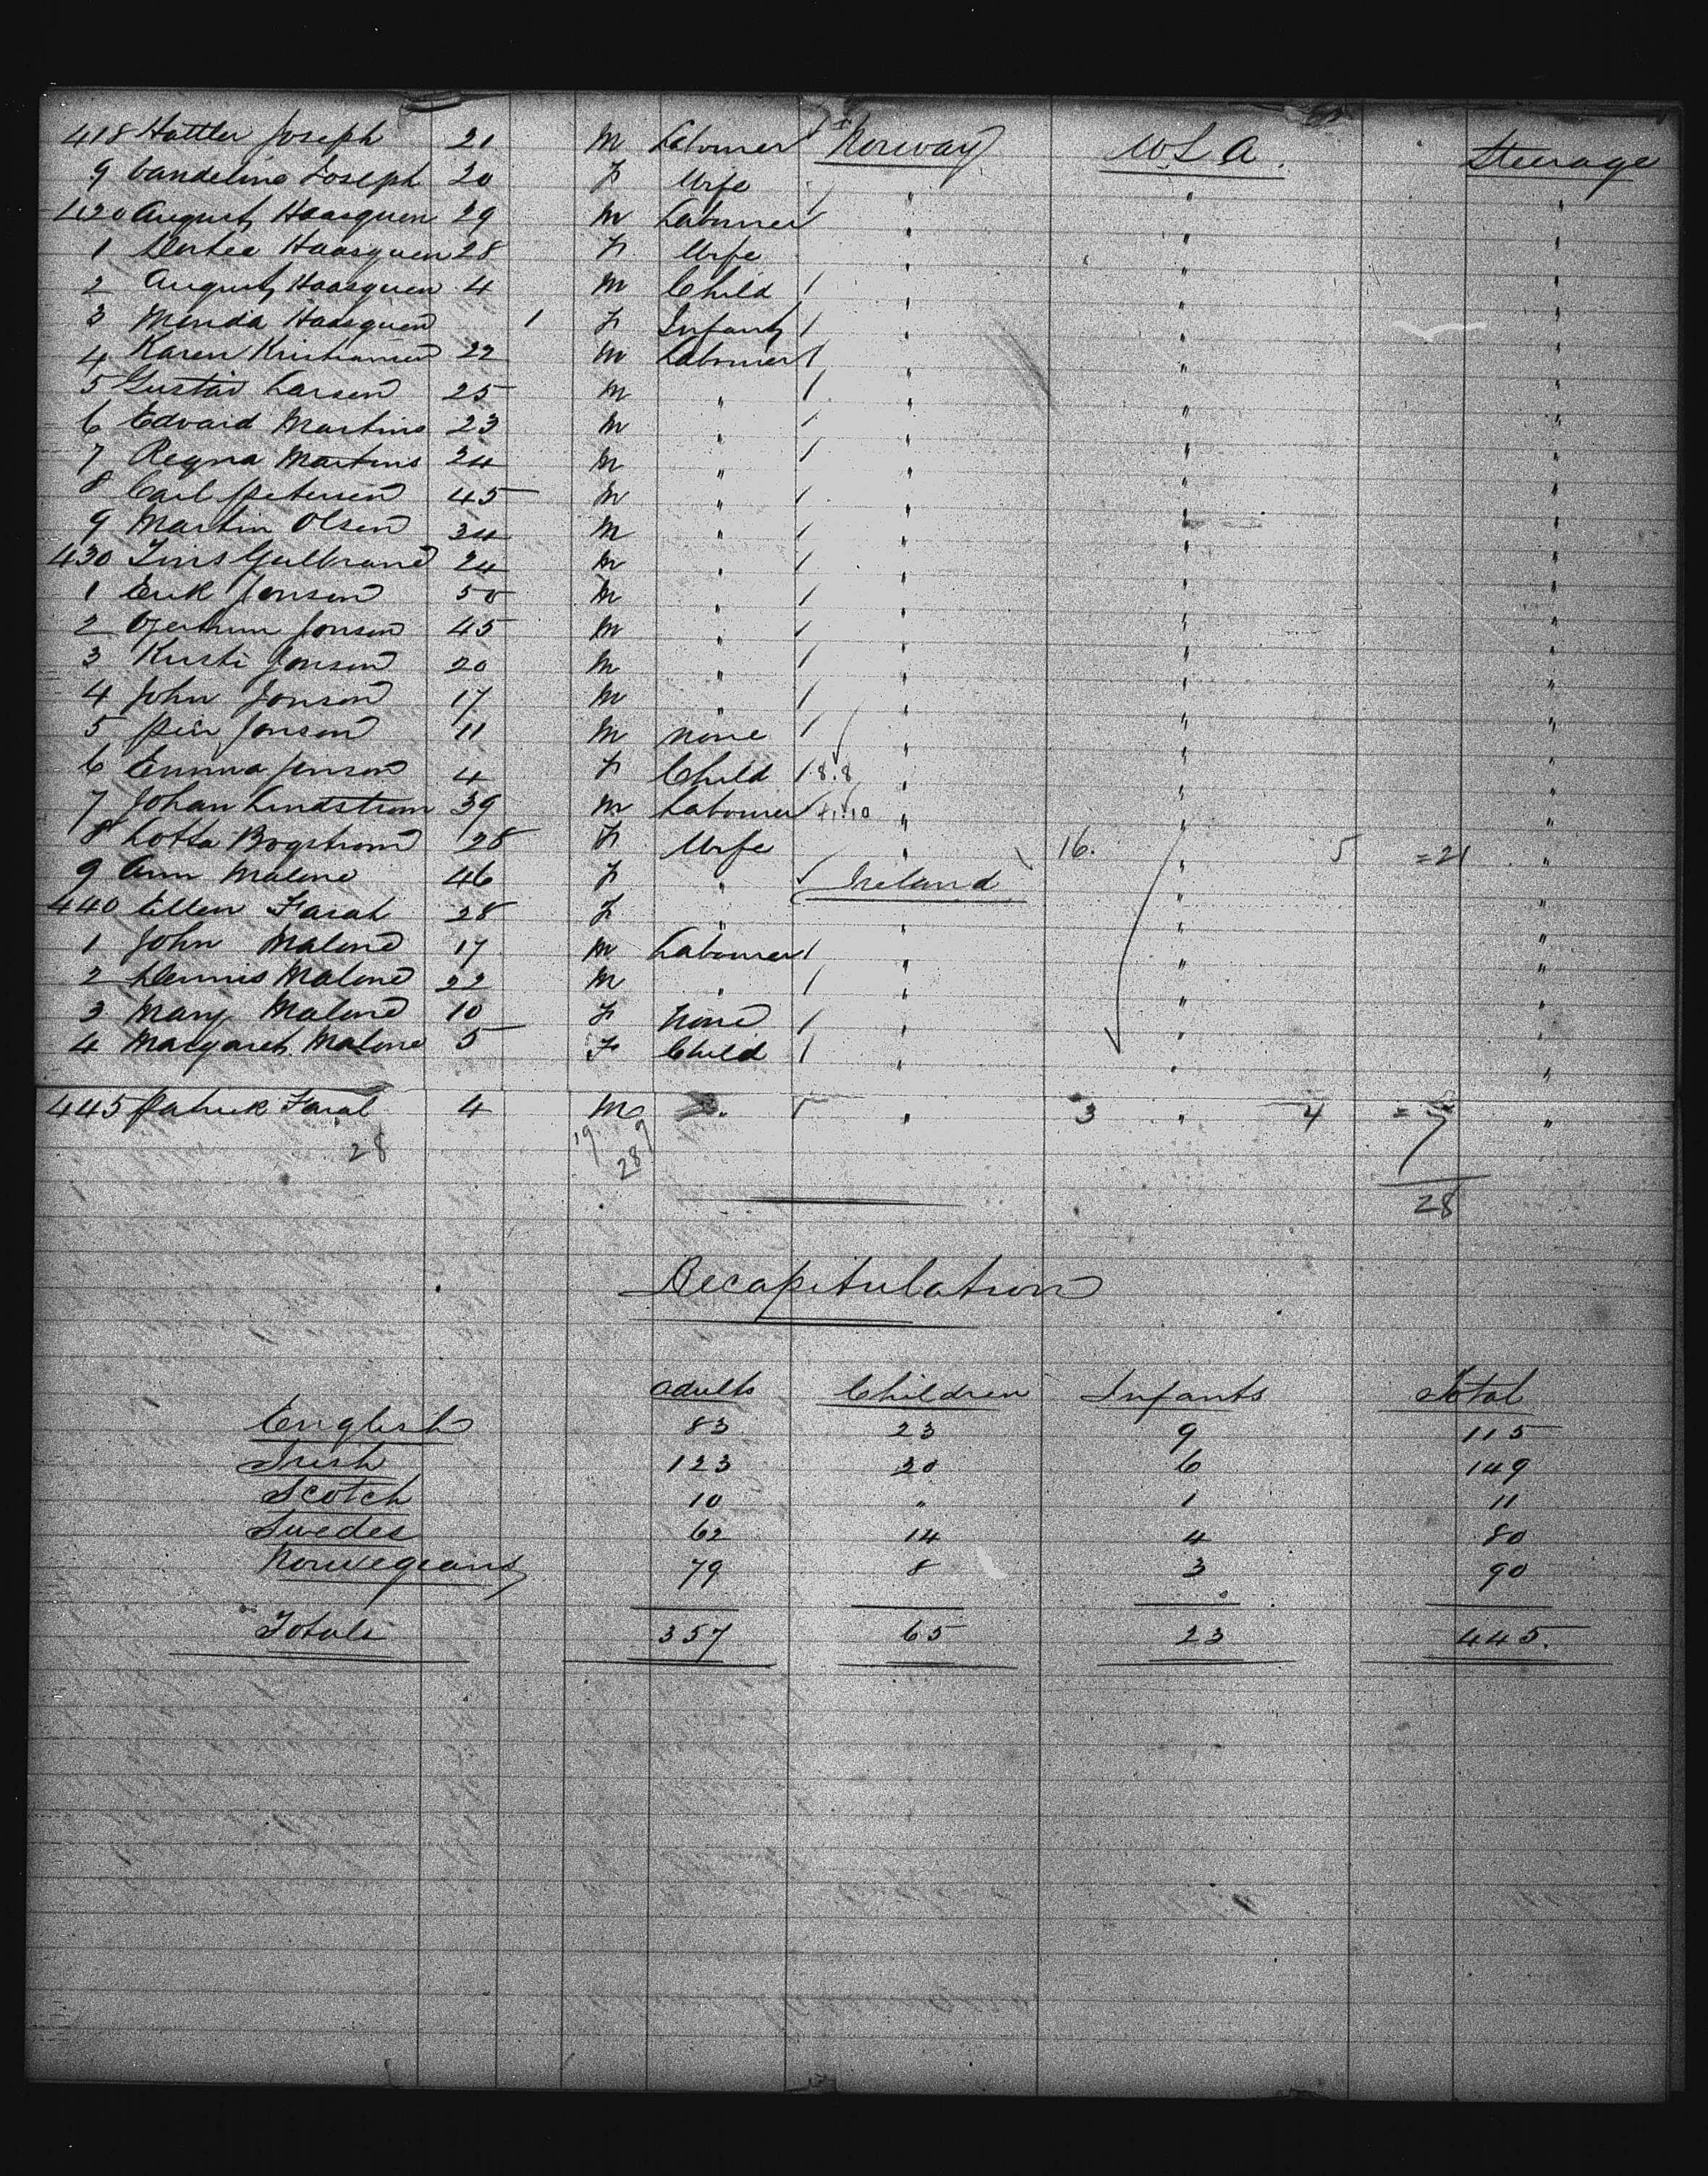 418 Hattler Joseph 21 M Labourer Norway U S A Steerage
9 Vandeline Joseph 20 F Wife " " "
420 August Haasquen 29 M Labourer " " "
1 Dortea Haasquen 28 F Wife " " "
2 August Haasquen 4 M Child " " "
3 Menda Haasquen 1 F Infant " " "
4 Karen Kristiansen 22 M Labourer " " "
5 Gustav Larsen 25 M " " " "
6 Edvard Martins 23 M " " " "
7 Regna Martins 24 M " " " "
8 Carl Petersen 45 M " " " "
9 Martin Olsen 34 M " " " "
430 Gulbrand 24 M " " " "
1 Erik Jonson 50 M " " " "
2 Jonson 45 M " " " "
3 Kristi Jonson 20 M " " " "
4 John Jonson 17 M " " " "
5 Peir Jonson 11 M None " " "
6 Emma Jonson 4 F Child 8.8 " " "
7 Johan Lindstrom 39 M Labourer " " "
8 Lotta Bogstrom 28 F Wife " 16. " 5 =21 "
9 Ann Malone 46 F " Ireland " "
440 Ellen Faral 28 F " " " "
1 John Malone 17 M Labourer " " "
2 Dennis Malone 22 M " " " "
3 Mary Malone 10 F None " " "
4 Margaret Malone 5 F Child " " "
445 Patrick Faral 4 M " " 3 " 4 = 7 "
28 19 9 28
28
Recapitulation
Adults Children Infants Total
English 83 23 9 115
Irish 123 20 6 149
Scotch 10 " 1 11
Swedes 62 14 4 80
Norwegians 79 8 3 90
Totals 357 65 23 445.